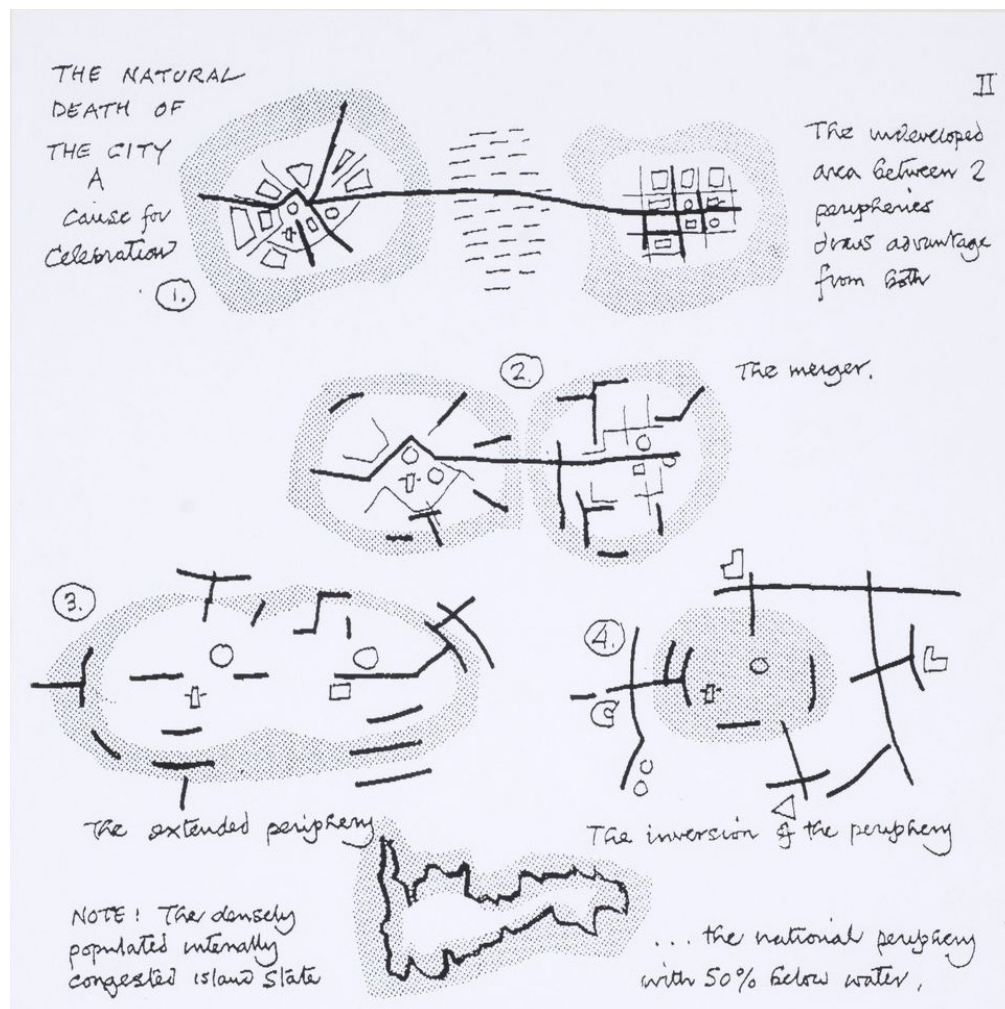 THE NATURAL
DEATH OF
THE CITY
A
Cause for
Celebration
1.
II
The undeveloped
area between 2
peripheries
draws advantage
from both
2.
The merger.
3.
The extended periphery
4.
The inversion of the periphery
NOTE! The densely
populated internally
congested island state
... the national periphery
with 50% below water,